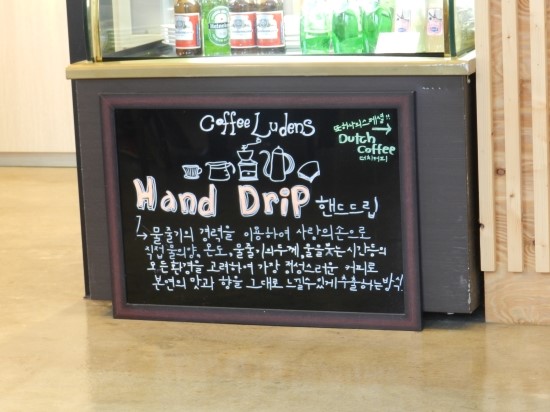 Coffee Ludens
또하나의스페셜!!
Dutch
Coffee
더치커피
Hand Drip 핸드드립
물줄기의 경력을 이용하여 사람의손으로
직접 물의양, 온도, 물줄기의두께, 물을붓는시간등의
모든환경을 고려하여 가장 정성스러운 커피로
본연의 맛과 향을 그대로 느낄수있게추출하는방식!